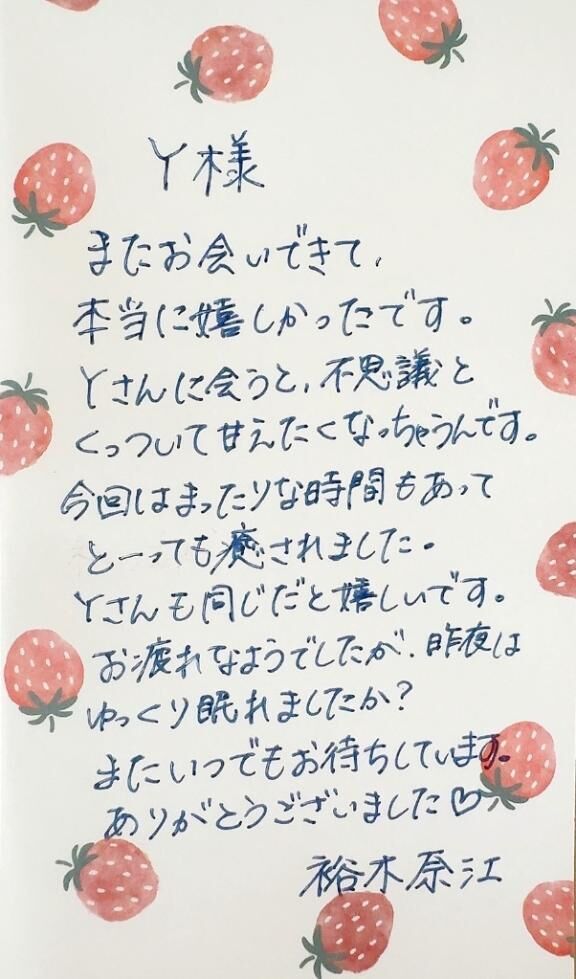 Y様
またお会いできて、
本当に嬉しかったです。
Yさんに会うと、不思議と
くっついて甘えたくなっちゃうんです。
今回はまったりな時間もあって
とーっても癒されました。
Yさんも同じだと嬉しいです。
お疲れなようでしたが、昨夜は
ゆっくり眠れましたか？
またいつでもお待ちしています。
ありがとうございました♡
裕木奈江